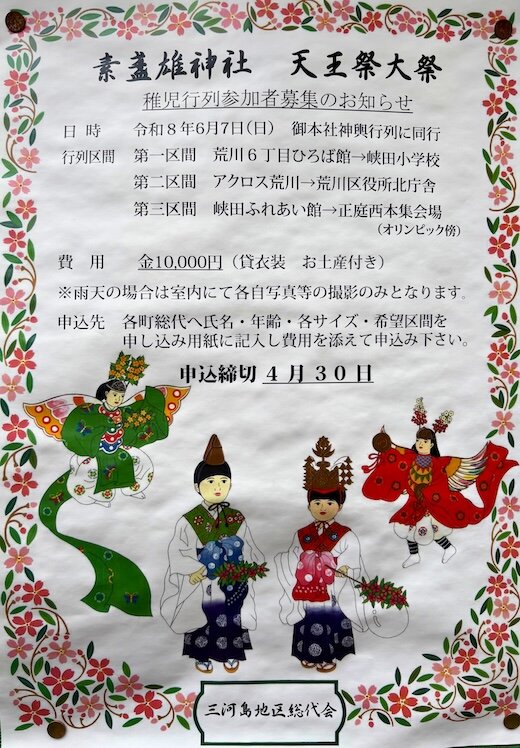 素盞雄神社　天王祭大祭
稚児行列参加者募集のお知らせ
日時　令和８年6月7日(日)　御本社神輿行列に同行
行列区間　第一区間　荒川６丁目ひろば館→峡田小学校
第二区間　アクロス荒川→荒川区役所北庁舎
第三区間　峡田ふれあい館→正庭西本集会場
(オリンピック傍)
費用　金10,000円（貸衣装　お土産付き）
※雨天の場合は室内にて各自写真等の撮影のみとなります。
申込先　各町総代へ氏名・年齢・各サイズ・希望区間を
申し込み用紙に記入し費用を添えて申込み下さい。
申込締切 ４月３０日
三河島地区総代会